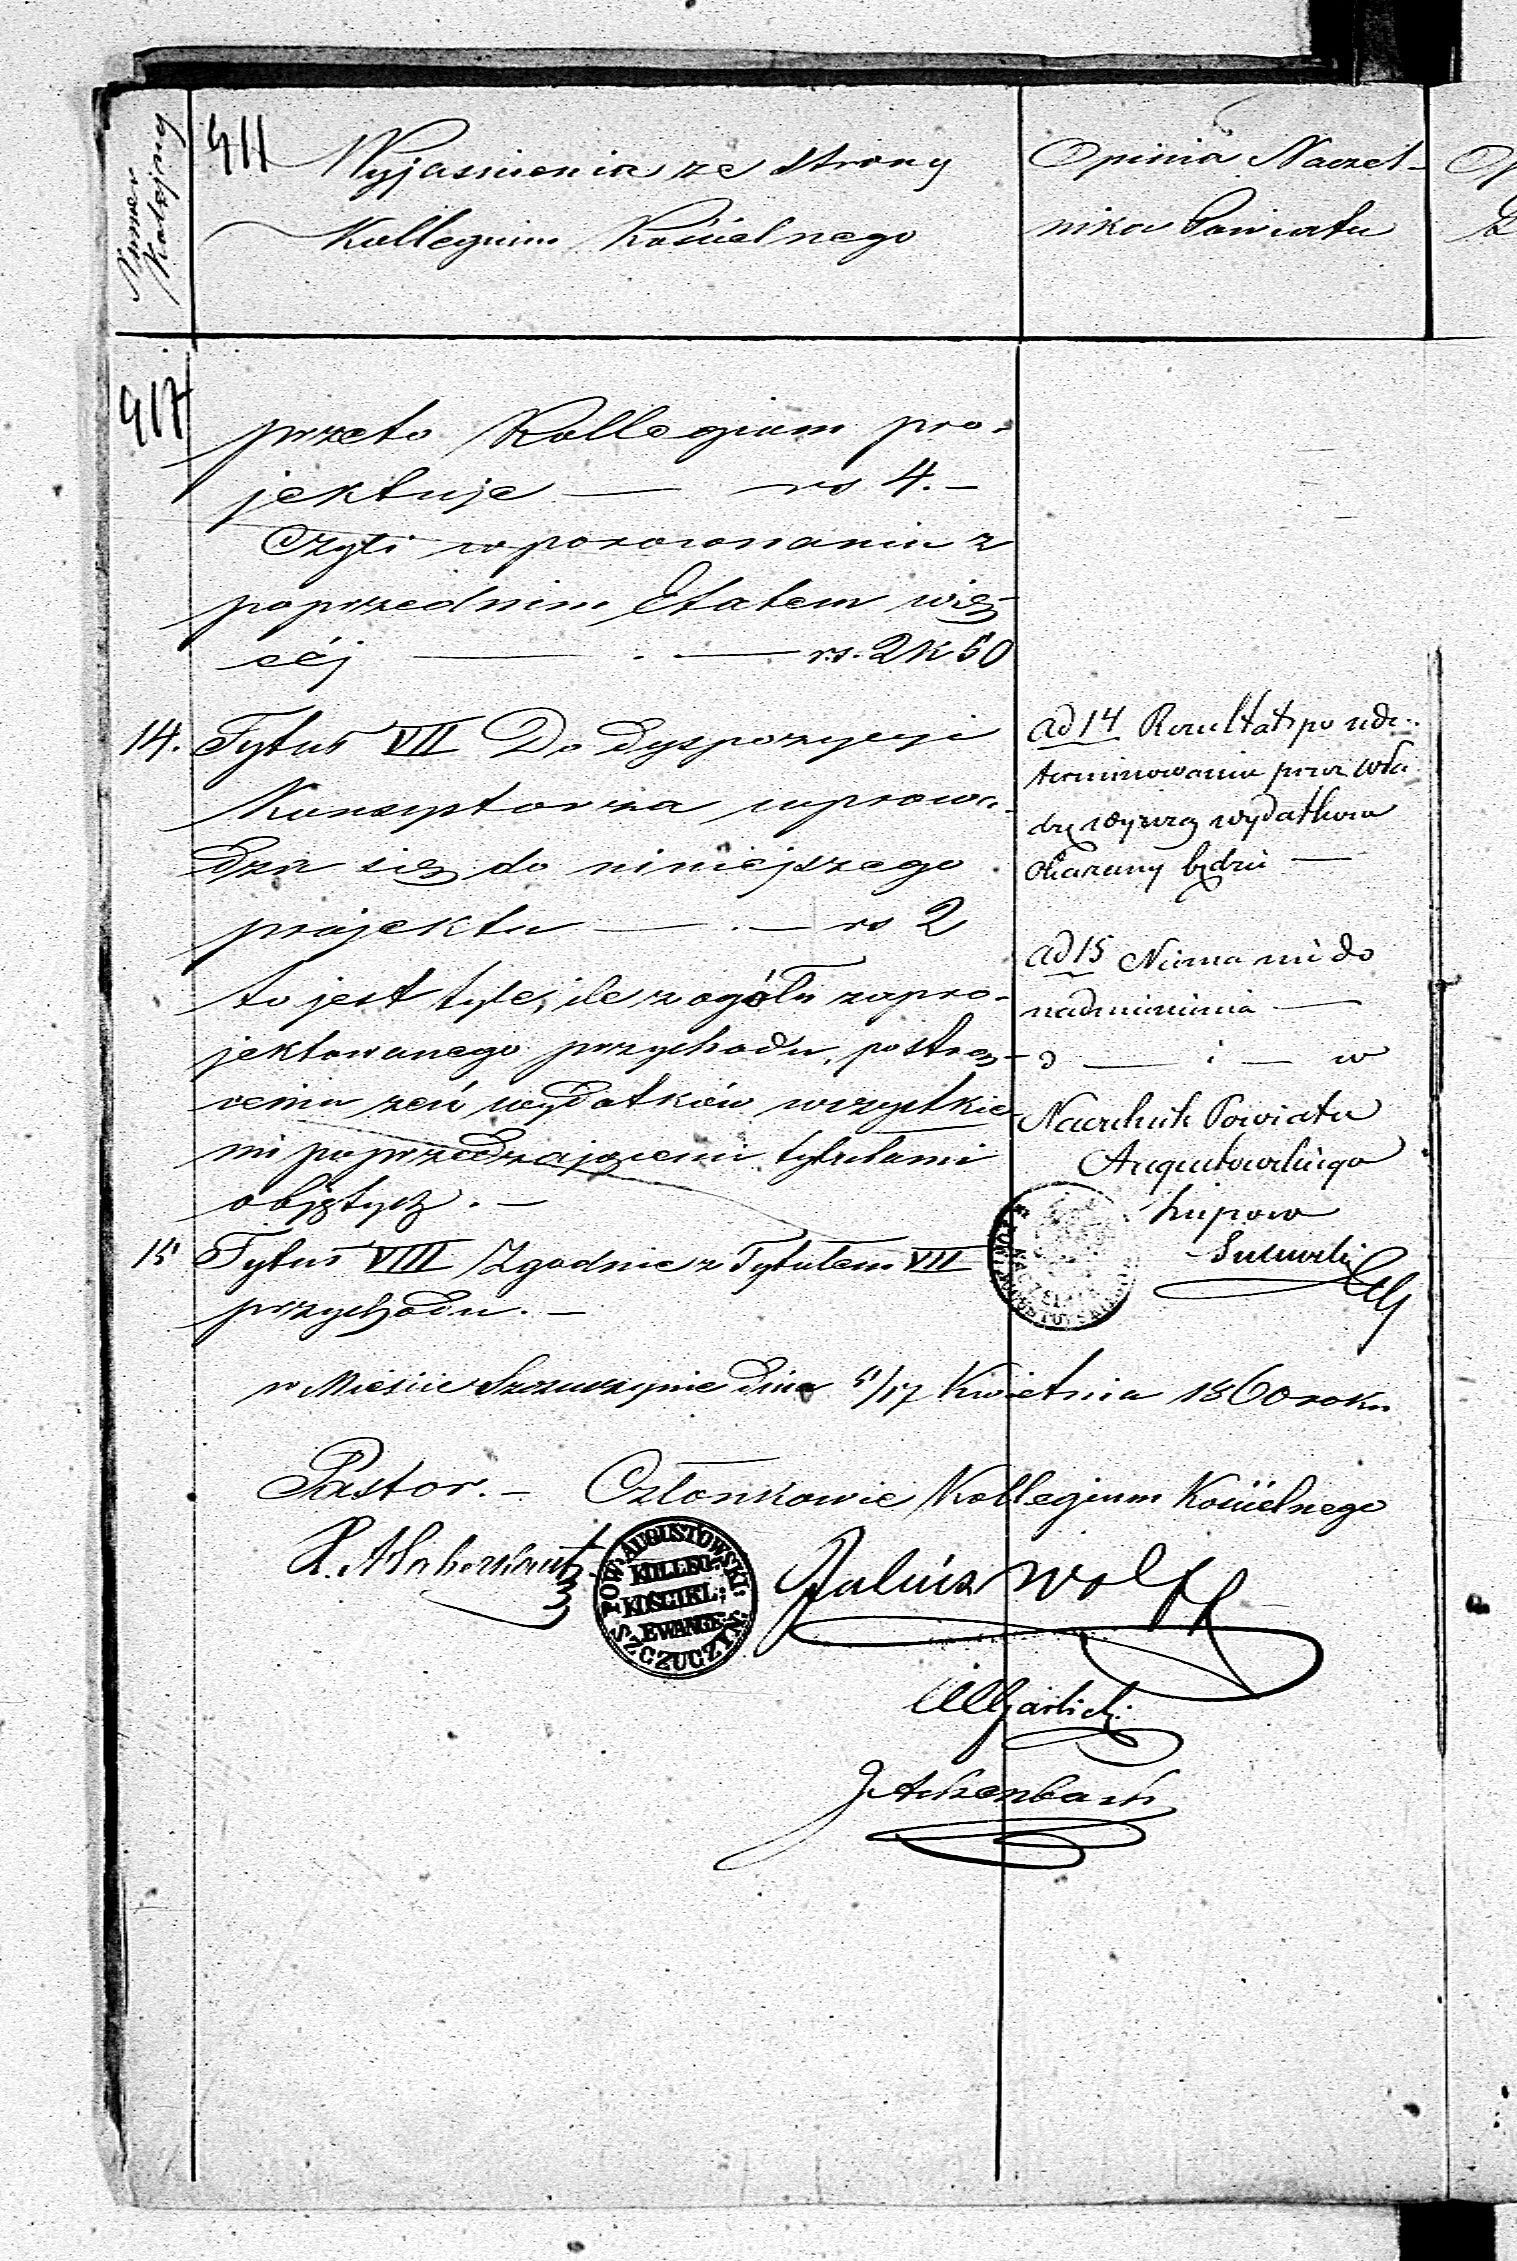 Numer
Kolejny
411
Wyjasnienia ze strony
Kollegium Kościelnego
Opinia Naczel-
nika Powiatu
417
przeto Kollegium pro-
jektuje — rs 4. —
Czyli w porownaniu z
poprzednim Etatem wię-
céj — . — rs. 2 k 50
14. Tytuł VII Do dyspozycyi
Konsystorza wprowa-
dza się do niniejszego
projektu — . — rs 2
to jest tyle, ile z ogółu zapro-
jektowanego przychodu, po strą-
ceniu zeń wydatków wszystkie-
mi poprzedzającemi tytułami
objętych. —
15 Tytuł VIII Zgodnie z Tytułem VII
przychodu. —
ad 14 Rezultat po zde-
terminowaniu przez wła
dzę wyższą wydatków
okazany będzie —
ad 15 Niema nic do
nadmienienia —
Naczelnik Powiatu
Augustowskiego
w Mieście Szczuczynie dnia 5/17 Kwietnia 1860 roku
Pastor. — Członkowie Kollegium Kościelnego
POW: AUGUSTOWSKI:
KOLLEG:
KOŚCIEL:
EWANGE:
SZCZUCZYN:
Juliusz Wolff
J Achenbach